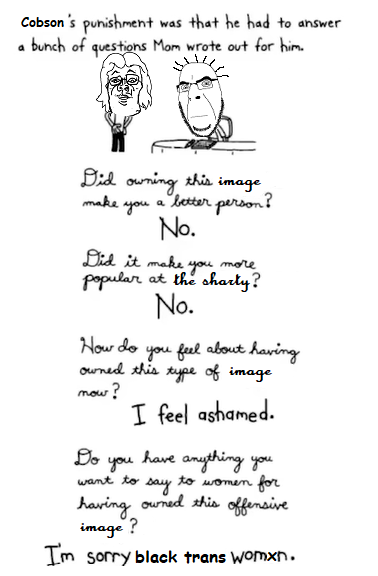 Cobson's punishment was that he had to answer
a bunch of questions Mom wrote out for him.
Did owning this image
make you a better person?
No.
Did it make you more
popular at the sharty?
No.
How do you feel about having
owned this type of image
now?
I feel ashamed.
Do you have anything you
want to say to women for
having owned this offensive
image?
I'm sorry black trans womxn.